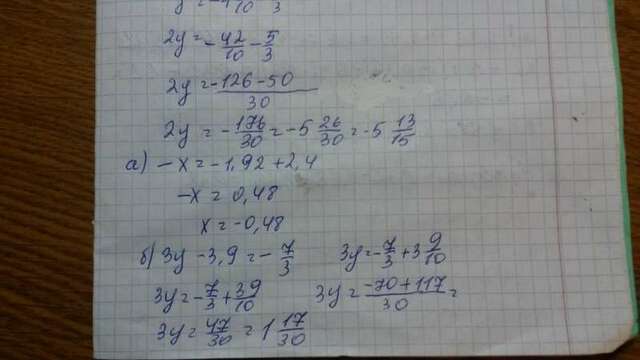 2y = -42/10 - 5/3
2y = -126-50/30
2y = -176/30 = -5 26/30 = -5 13/15
а) -x = -1,92 + 2,4
-x = 0,48
x = -0,48
б) 3y - 3,9 = -7/3
3y = -7/3 + 39/10
3y = 47/30 = 1 17/30
3y = -7/3 + 3 9/10
3y = -70+117/30 =